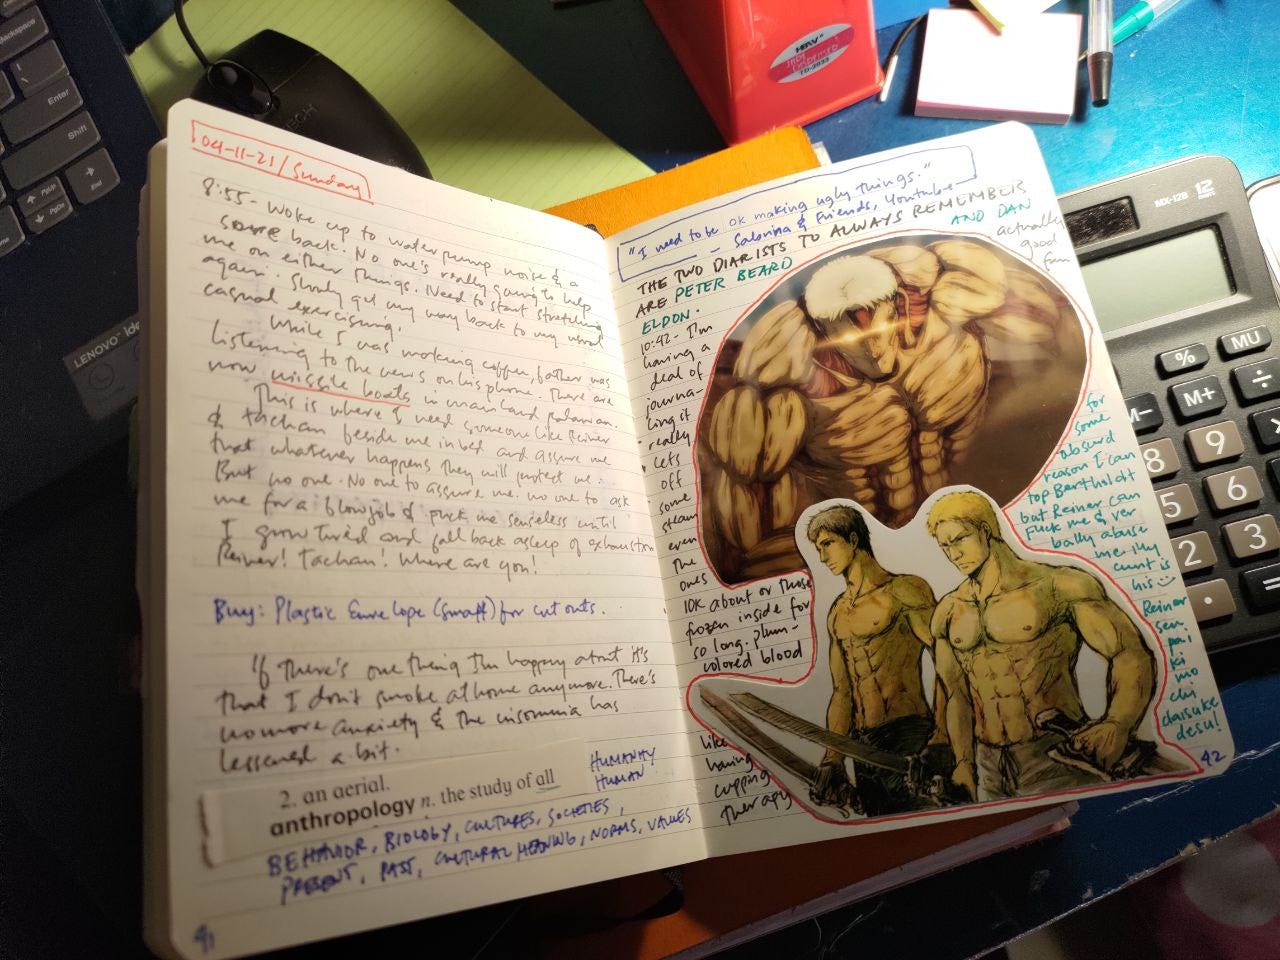 04-11-21/Sunday
8:55- Woke up to water pump noise & a
sore back. No one's really going to help
me on either things. Need to start stretching
again. Slowly get my way back to my usual
casual exercising.
While I was making coffee, father was
listening to the news on his phone. There are
now missile boats in mainland palawan.
This is where I need someone like Reiner
& Tachan beside me in bed and assure me
that whatever happens they will protect me.
But no one. No one to assure me. no one to ask
me for a blowjob & fuck me senseless until
I grow tired and fall back asleep of exhaustion
Reiner! Tachan! Where are you!
Buy: Plastic Envelope (small) for cut outs.
If there's one thing I'm happy about it's
that I don't smoke at home anymore. There's
no more anxiety & the insomnia has
lessened a bit.
2. an aerial.
anthropology n. the study of all
HUMANITY
HUMAN
BEHAVIOR, BIOLOGY, CULTURES, SOCIETIES,
PRESENT, PAST, CULTURAL MEANING, NORMS, VALUES
41
"I need to be ok making ugly things."
- Sabrina & Friends, Youtube
THE TWO DIARISTS TO ALWAYS REMEMBER
ARE PETER BEARD AND DAN
ELDON.
10:42 - I'm
having a
deal of
journa-
ling it
really
lets
off
some
steam
even
the
ones
10K about or those
frozen inside for
so long. plum-
colored blood
like
having
cupping
therapy
actually
good
fun
for
some
absurd
reason I can
top Bertholdt
but Reiner can
Fuck me & ver
bally abuse
me. My
cunt is
his
Reiner
sen
pai
ki
mo
chi
daisuke
desu!
42
Backspace
Enter
Shift
PgUp
PgDn
End
LENOVO
HBW
TD-2033
MX-12B
12
%
MU
M-
M+
÷
8
9
5
6
2
3
.
=